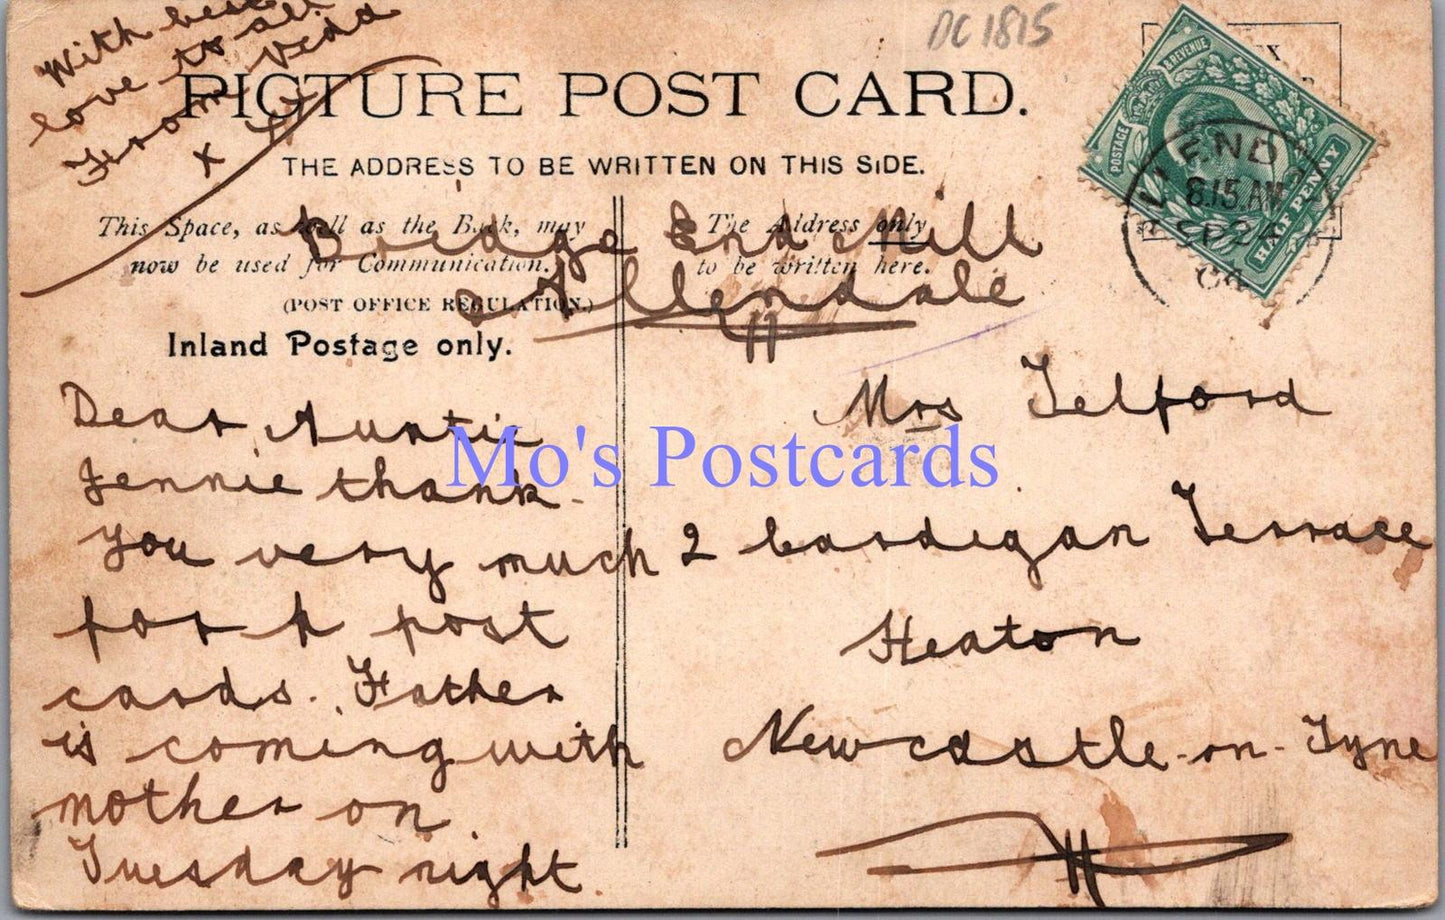 With best
love to all
From Veda
x
DC 1815
PICTURE POST CARD.
THE ADDRESS TO BE WRITTEN ON THIS SIDE.
This Space, as well as the Back, may
now be used for Communication.
(POST OFFICE REGULATION.)
Inland Postage only.
The Address only
to be written here.
POSTAGE & REVENUE
HALF PENNY
8.15 AM
SP 24
Bridge End Mill
Allendale
Dear Auntie
Jennie thank
you very much
for post
cards. Father
is coming with
mother on
Tuesday night
Mrs Telford
2 Cardigan Terrace
Heaton
Newcastle-on-Tyne
Mo's Postcards